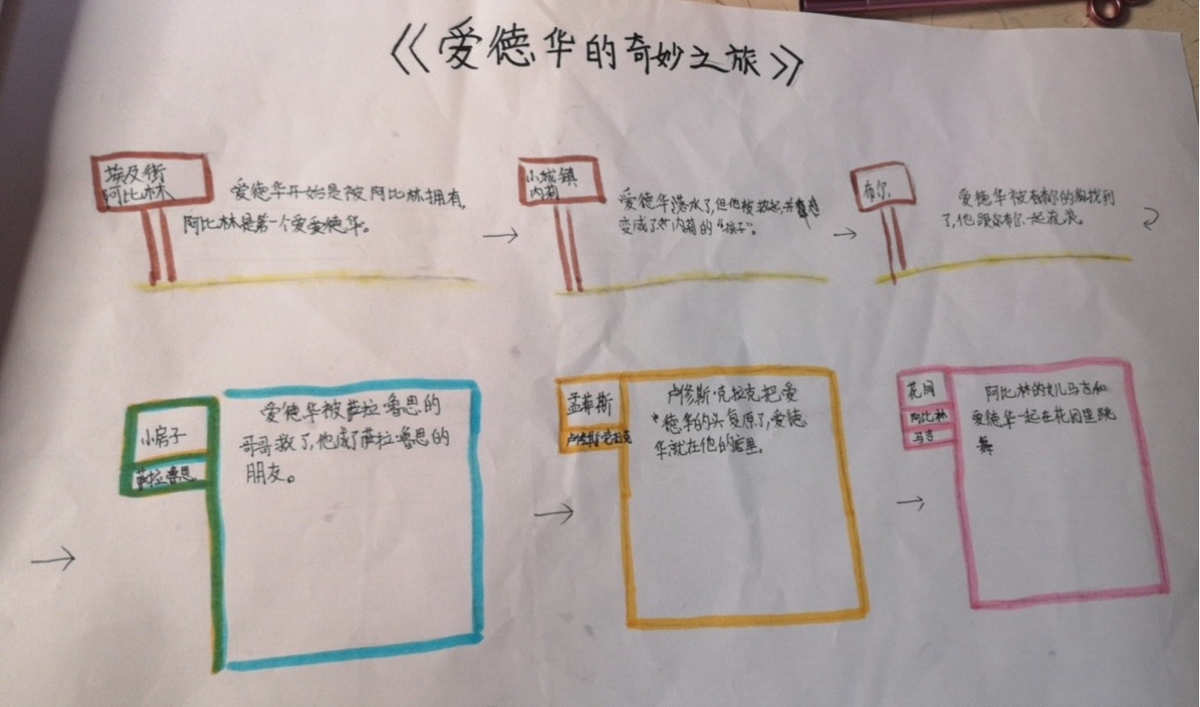 《爱德华的奇妙之旅》
埃及街
阿比林
爱德华开始是被阿比林拥有,
阿比林是第一个爱爱德华。
小城镇
内莉
爱德华落水了,但他被救起,并
变成了内莉的“孩子”。
布尔
爱德华被布尔的狗找到
了,他跟布尔一起流浪。
小房子
萨拉·鲁思
爱德华被萨拉·鲁思的
哥哥救了,他成了萨拉·鲁思的
朋友。
孟菲斯
卢修斯·克拉克
卢修斯·克拉克把爱
德华的头复原了,爱德
华就在他的店里。
花园
阿比林
马吉
阿比林的女儿马吉和
爱德华一起在花园里跳
舞